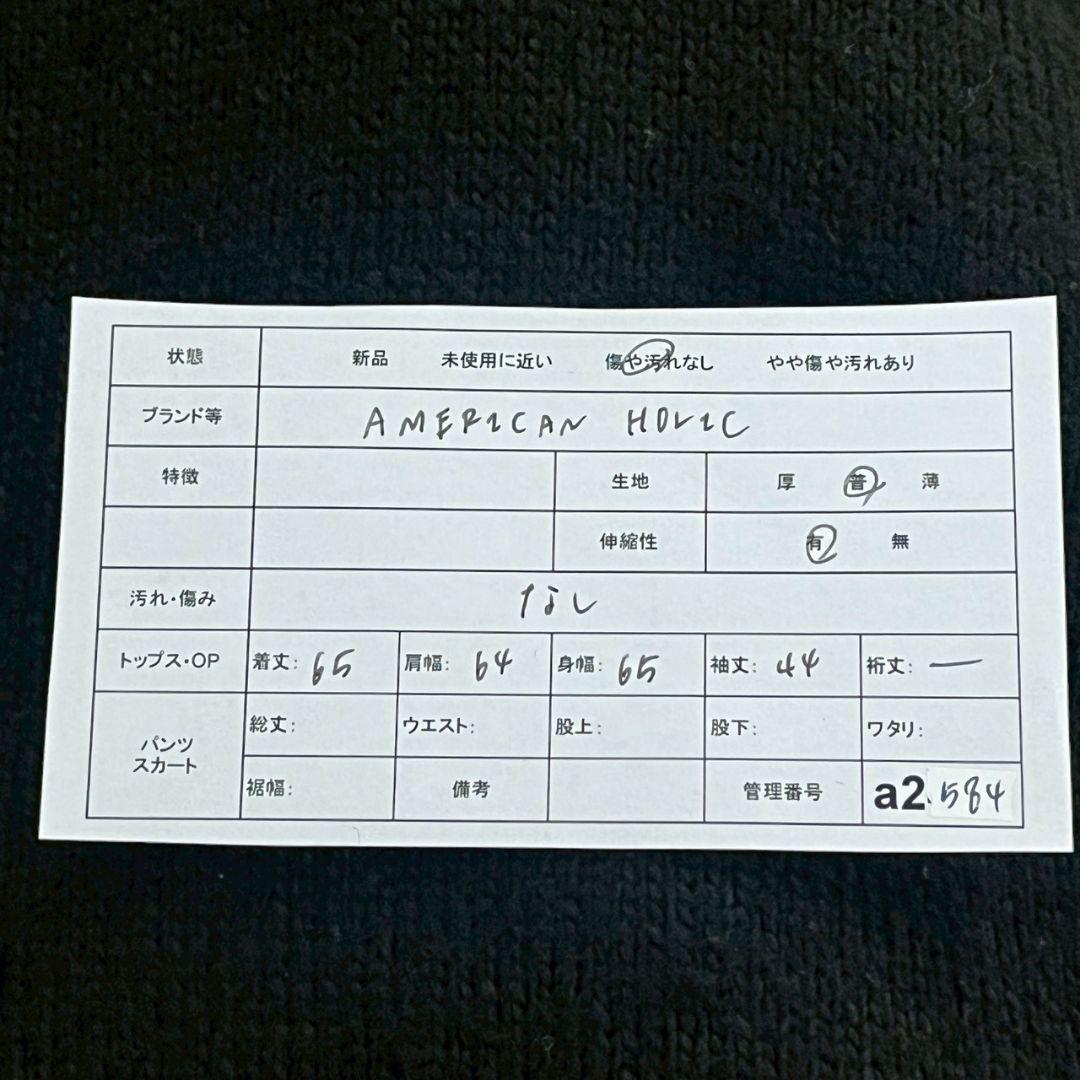 状態 新品 未使用に近い 傷や汚れなし やや傷や汚れあり
ブランド等 AMERICAN HOLIC
特徴 生地 厚 普 薄
伸縮性 有 無
汚れ・傷み なし
トップス・OP 着丈: 65 肩幅: 64 身幅: 65 袖丈: 44 裄丈: —
パンツ スカート 総丈: ウエスト: 股上: 股下: ワタリ:
裾幅: 備考 管理番号 a2.584